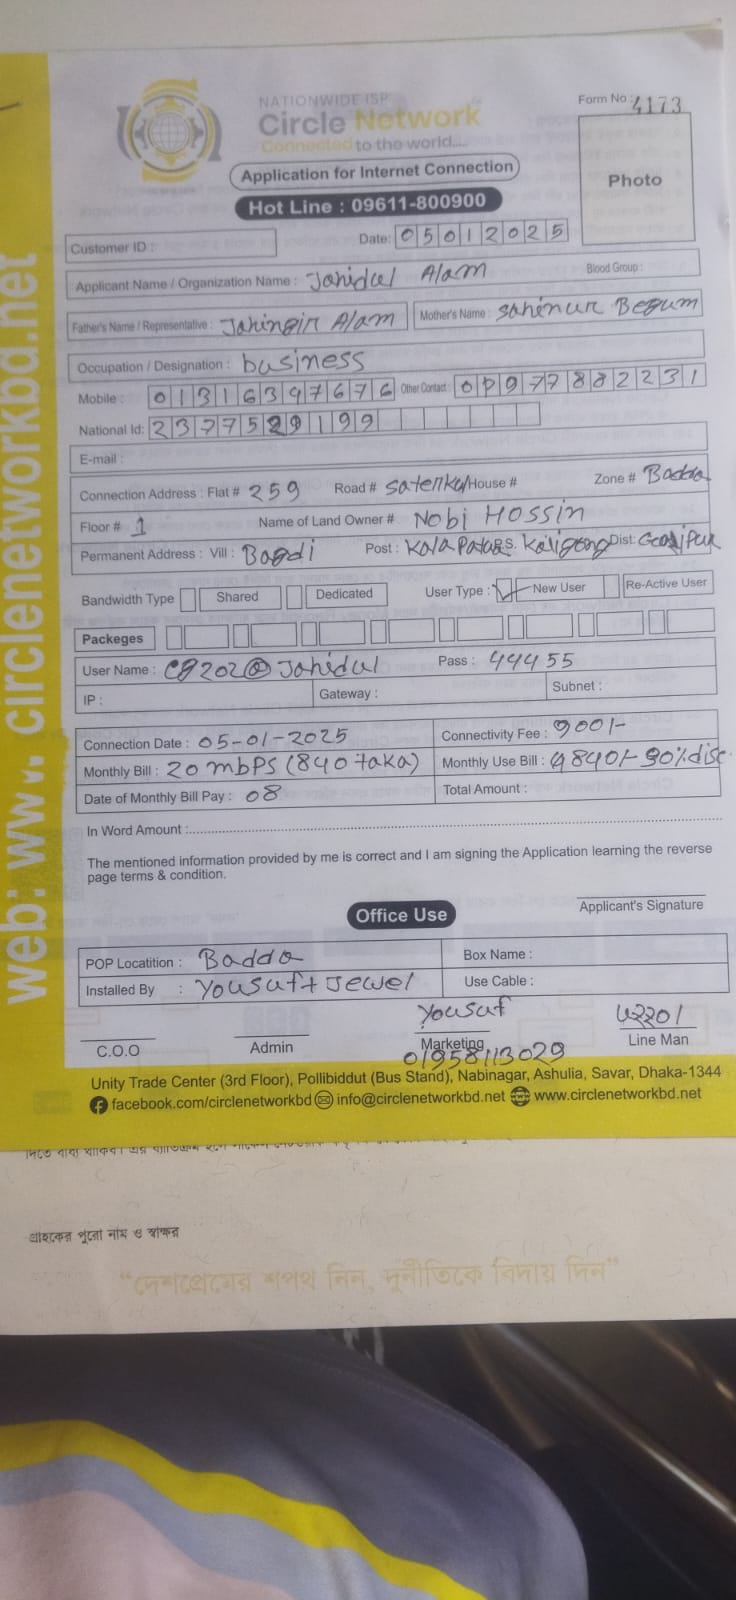 NATIONWIDE ISP
Circle Network
Connected to the world....
Form No : 4173
Application for Internet Connection
Photo
Hot Line : 09611-800900
Customer ID :
Date: 05012025
Applicant Name / Organization Name : Jahidul Alam
Blood Group :
Father's Name / Representative : Jahingir Alam
Mother's Name : Sahinur Begum
Occupation / Designation : business
Mobile : 01316397676 Other Contact :
National Id: 2377529199
E-mail :
Connection Address : Flat # 259 Road # House # Zone # Badda
Floor # 1 Name of Land Owner # Nobi Hossin
Permanent Address : Vill : Bagdi Post : P.S. Dist:
Bandwidth Type Shared Dedicated User Type : ✓ New User Re-Active User
Packeges
User Name : Pass : 44455
IP : Gateway : Subnet :
Connection Date : 05-01-2025 Connectivity Fee : 900/-
Monthly Bill : 20 mbps (840 taka) Monthly Use Bill :
Date of Monthly Bill Pay : 08 Total Amount :
In Word Amount :
The mentioned information provided by me is correct and I am signing the Application learning the reverse
page terms & condition.
Applicant's Signature
Office Use
POP Locatition : Badda Box Name :
Installed By : Yousuf + Jewel Use Cable :
Yousuf
C.O.O Admin Marketing Line Man
01958113029
Unity Trade Center (3rd Floor), Pollibiddut (Bus Stand), Nabinagar, Ashulia, Savar, Dhaka-1344
facebook.com/circlenetworkbd info@circlenetworkbd.net www.circlenetworkbd.net
web: www. circlenetworkbd.net
গ্রাহকের পুরো নাম ও স্বাক্ষর
“দেশপ্রেমের শপথ নিন, দুর্নীতিকে বিদায় দিন”